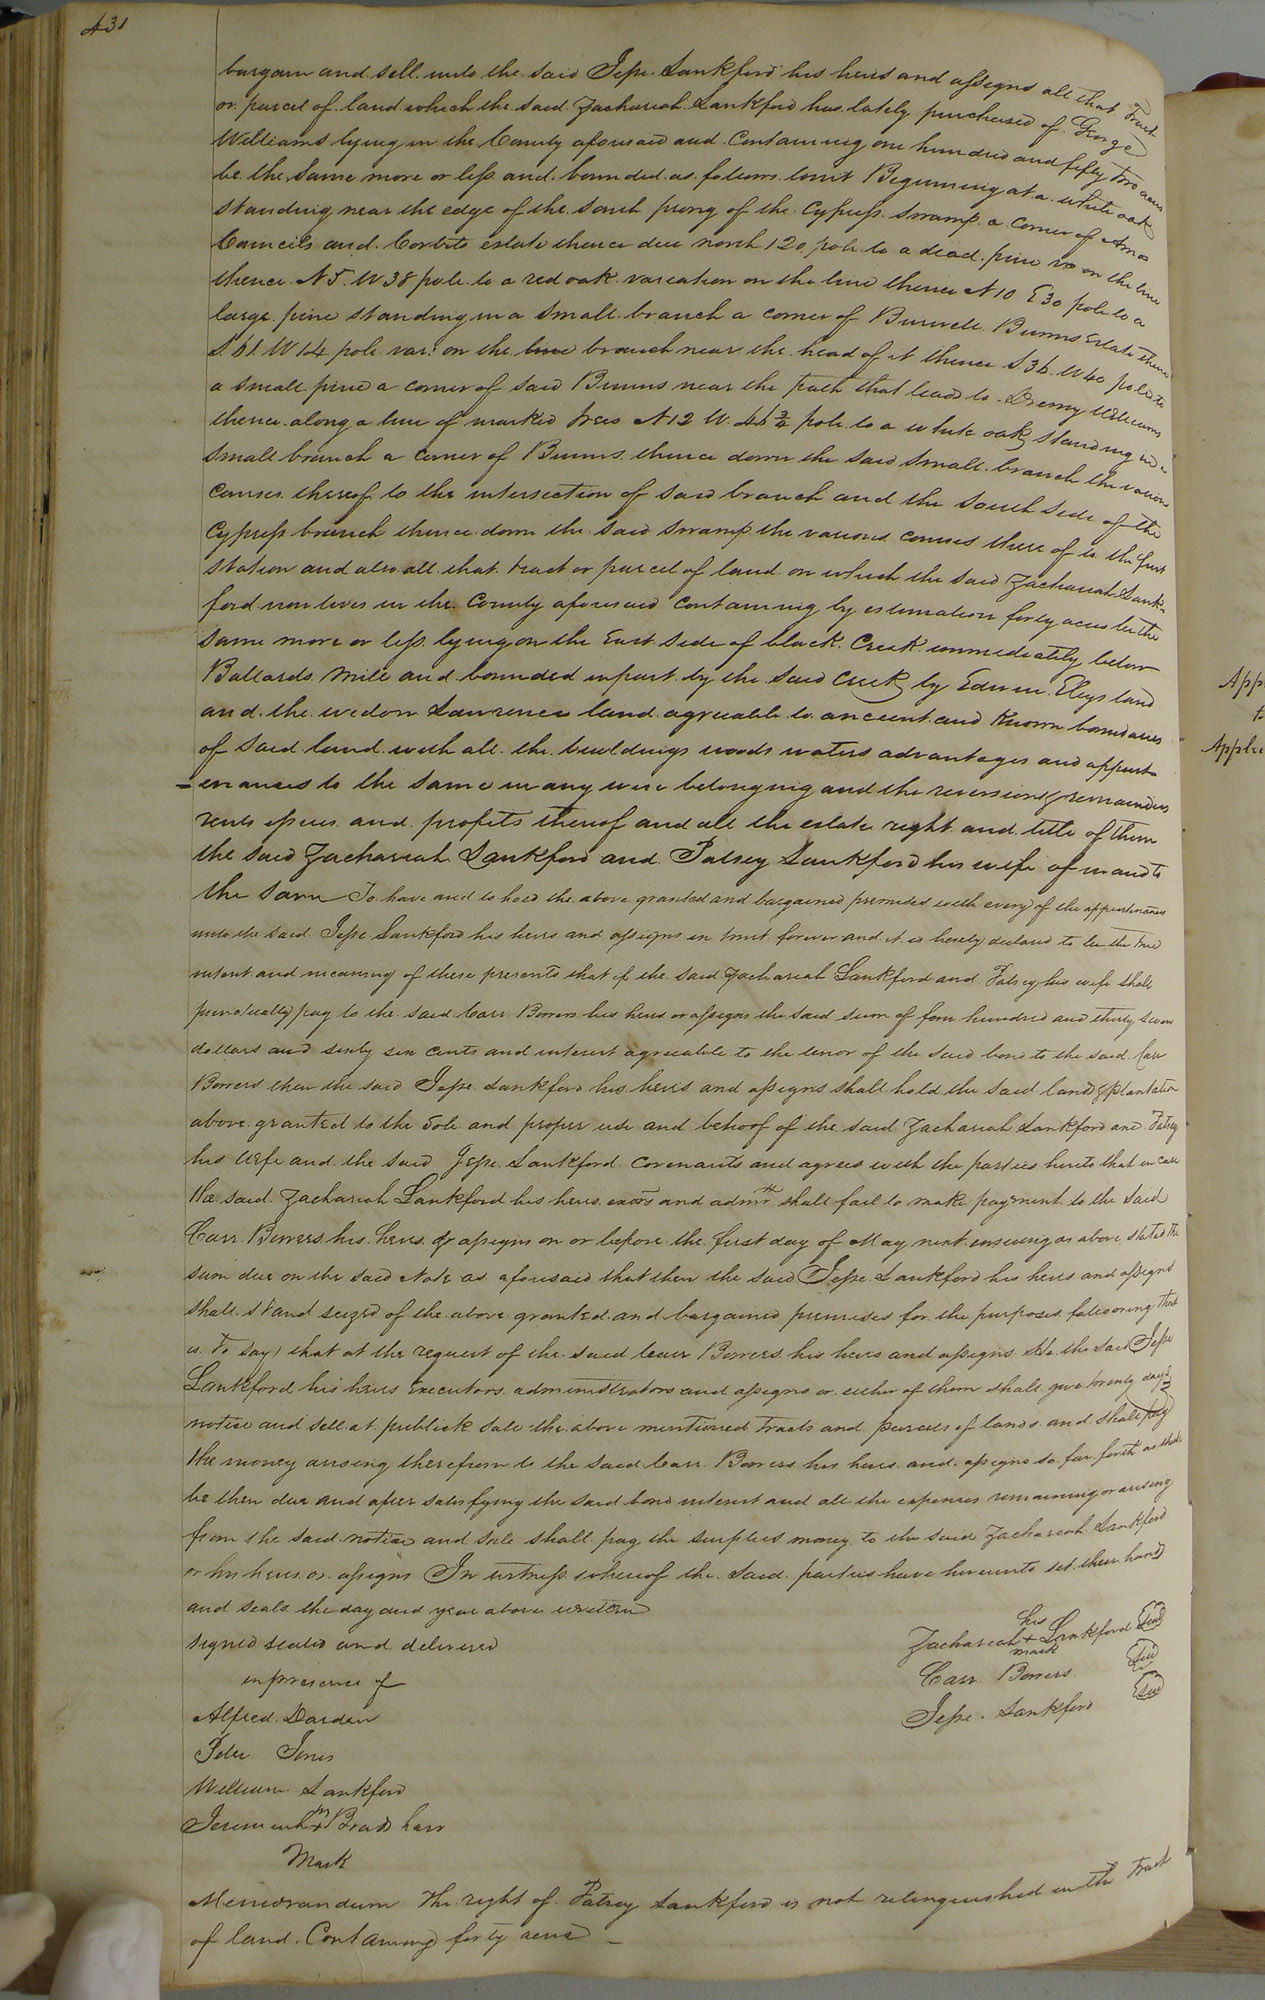 431
bargain and sell unto the said Jesse Lankford his heirs and assigns all that Tract
or parcel of land which the said Zachariah Lankford has lately purchased of George
Williams lying in the County aforesaid and Containing one hundred and fifty two acres
be the same more or less and bounded as follows towit Beginning at a white oak
standing near the edge of the south prong of the Cypress swamp a corner of Amos
Councils and Corbits estate thence due north 120 pole to a dead pine on the line
thence N5 W 38 pole to a red oak variation on the line thence N10 E30 pole to a
large pine standing in a small branch a corner of Burwell Bunns Estate thence
S.61 W 14 pole var: on the branch near the head of it thence S.36. W 40 pole to
a small pine a corner of said Bunns near the path that leads to Drewry Williams
thence along a line of marked trees N12 W. 46 3/4 pole to a white oak standing in a
small branch a corner of Bunns thence down the said small branch the various
courses thereof to the intersection of said branch and the South side of the
Cypress branch thence down the said swamp the various courses there of to the first
station and also all that tract or parcel of land on which the said Zachariah Lank-
ford now lives in the County aforesaid containing by estimation forty acres be the
same more or less lying on the East side of black Creek immediately below
Ballards Mill and bounded in part by the said Creek by Edwin Eleys land
and the widow Lawrence land agreeable to ancient and known boundaries
of said land with all the buildings woods waters advantages and appurt-
-enances to the same in any wise belonging and the reversions & remainders
rents issues and profits thereof and all the estate right and title of them
the said Zachariah Lankford and Patsey Lankford his wife of in and to
the same To have and to hold the above granted and bargained premises with every of the appurtenances
unto the said Jesse Lankford his heirs and assigns in trust forever and it is hereby declared to be the true
intent and meaning of these presents that if the said Zachariah Lankford and Patsey his wife shall
punctually pay to the said Carr Bowers his heirs or assigns the said sum of four hundred and thirty seven
dollars and sixty six cents and interest agreeable to the tenor of the said bond to the said Carr
Bowers then the said Jesse Lankford his heirs and assigns shall hold the said land & plantation
above granted to the sole and proper use and behoof of the said Zachariah Lankford and Patsey
his wife and the said Jesse Lankford covenants and agrees with the parties hereto that in case
the said Zachariah Lankford his heirs exors and admrs shall fail to make payment to the said
Carr Bowers his heirs & assigns on or before the first day of May next ensuing as above stated the
sum due on the said Note as aforesaid that then the said Jesse Lankford his heirs and assigns
shall stand seized of the above granted and bargained premises for the purposes following that
is to say, that at the request of the said Carr Bowers his heirs and assigns the said Jesse
Lankford his heirs Executors administrators and assigns or either of them shall give twenty days
notice and sell at publick sale the above mentioned tracts and parcels of lands and shall pay
the money arising therefrom to the said Carr Bowers his heirs and assigns so far forth as shall
be then due and after satisfying the said bond interest and all the expences remaining or arising
from the said notice and sale shall pay the surplus money to the said Zachariah Lankford
or his heirs or assigns In witness whereof the said parties have hereunto set their hand
and seals the day and year above written
signed sealed and delivered
in presence of
his
Zachariah + Lankford Seal
mark
Carr Bowers Seal
Jesse Lankford Seal
Alfred Darden
Peter Jones
William Lankford
Jeremiah Bradshaw
Mark
Memorandum the right of Patsey Lankford is not relinquished in the tract
of land Containing forty acres
App
Applic